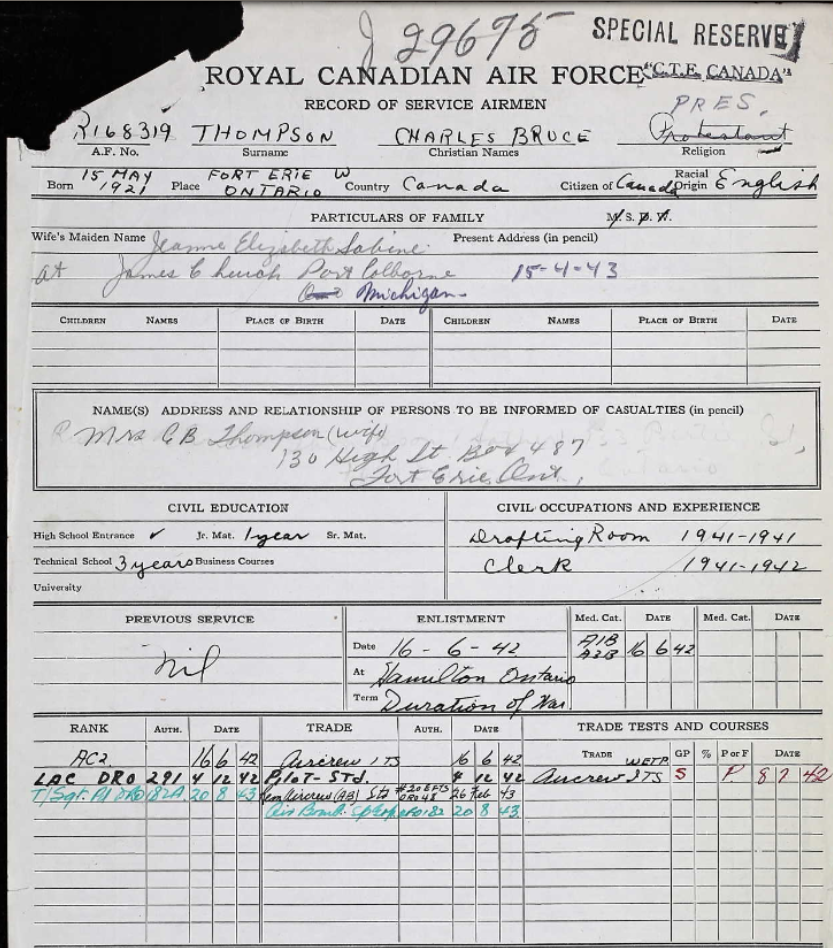 J 29675 SPECIAL RESERVE
ROYAL CANADIAN AIR FORCE "C.T.E. CANADA"
RECORD OF SERVICE AIRMEN
PRES.
R168319 THOMPSON CHARLES BRUCE Protestant
A.F. No. Surname Christian Names Religion
Born 15 MAY 1921 Place FORT ERIE W ONTARIO Country Canada Citizen of Canada Racial Origin English
PARTICULARS OF FAMILY M. S. D. W.
Wife's Maiden Name Jeanne Elizabeth Sabine Present Address (in pencil)
at James Church Port Colborne 15-4-43
Ont Michigan
CHILDREN NAMES PLACE OF BIRTH DATE CHILDREN NAMES PLACE OF BIRTH DATE
NAME(S) ADDRESS AND RELATIONSHIP OF PERSONS TO BE INFORMED OF CASUALTIES (in pencil)
Mrs C B Thompson (wife)
130 High St. Box 487
Fort Erie, Ont.,
Ontario
CIVIL EDUCATION CIVIL OCCUPATIONS AND EXPERIENCE
High School Entrance ✓ Jr. Mat. 1 year Sr. Mat. Drafting Room 1941-1941
Technical School 3 years Business Courses Clerk 1941-1942
University
PREVIOUS SERVICE ENLISTMENT Med. Cat. DATE Med. Cat. DATE
Nil Date 16-6-42 A1B A3B 16 6 42
At Hamilton Ontario
Term Duration of War.
RANK AUTH. DATE TRADE AUTH. DATE TRADE TESTS AND COURSES
TRADE WETP GP % P or F DATE
AC2 16 6 42 Aircrew ITS 16 6 42
LAC DRO 291 4 12 42 Pilot-Std. 4 12 42 Aircrew ITS S P 8 7 42
T/Sgt. Pd DRO 182A 20 8 43 Aircrew (AB) Std #20 EFTS DRO 48 26 Feb 43
Air Bomb. 182 20 8 43